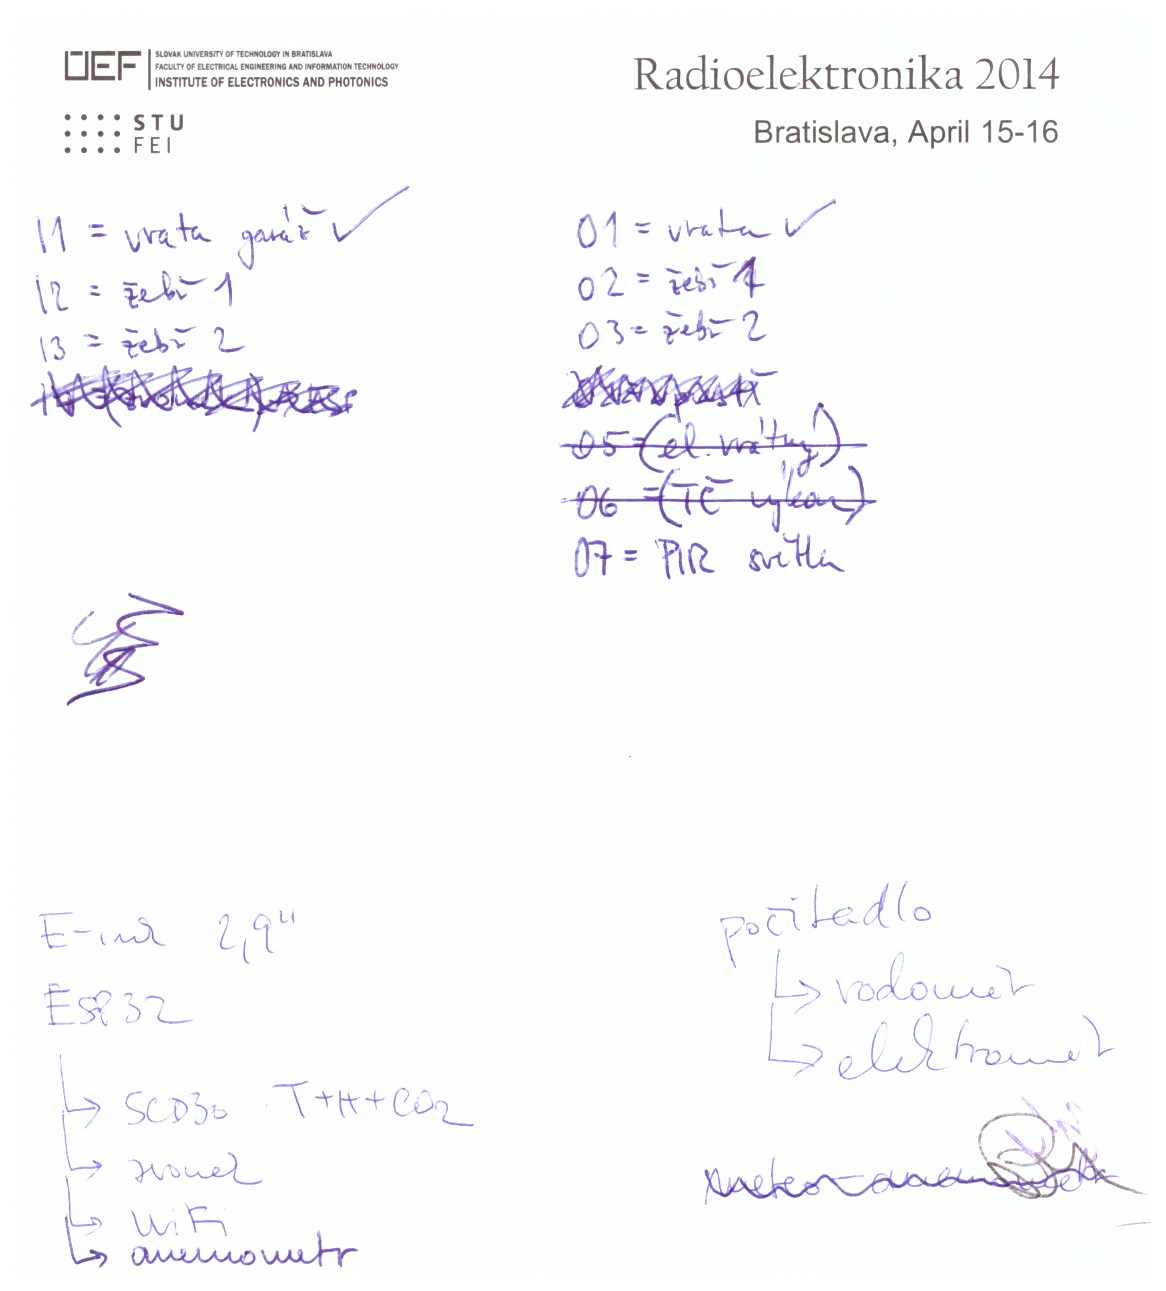 SLOVAK UNIVERSITY OF TECHNOLOGY IN BRATISLAVA
FACULTY OF ELECTRICAL ENGINEERING AND INFORMATION TECHNOLOGY
INSTITUTE OF ELECTRONICS AND PHOTONICS
STU
FEI
Radioelektronika 2014
Bratislava, April 15-16
I1 = vrata garáž ✓
I2 = žebř 1
I3 = žebř 2
O1 = vrata ✓
O2 = žebř 1
O3 = žebř 2
O5 = (el. vrátný)
O6 = (TČ výkon)
O7 = PIR světla
E-ink 2,9"
ESP32
↳ SCD30 T+H+CO2
↳ zvonek
↳ WiFi
↳ anemometr
počítadlo
↳ vodoměr
↳ elektroměr